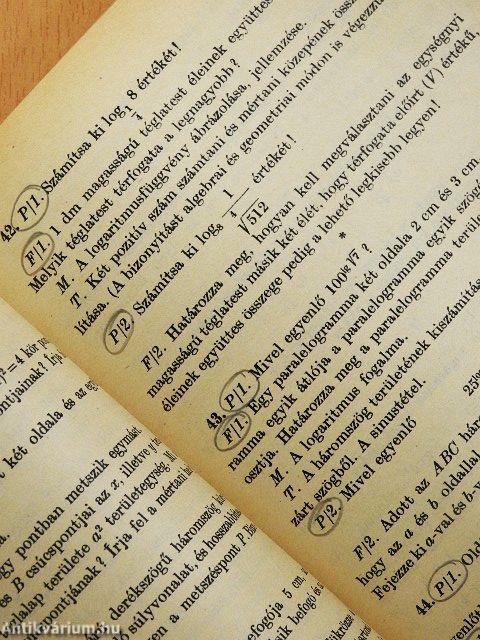 8 értékét!
42. P/1. Számítsa ki log 1/4
F/1. 1 dm magasságú téglatest éleinek együttes
Melyik téglatest térfogata a legnagyobb?
M. A logaritmusfüggvény ábrázolása, jellemzése.
T. Két pozitív szám számtani és mértani közepének össz
lítása. (A bizonyítást algebrai és geometriai módon is végezzü
P/2. Számítsa ki log₈ 1/⁴√512 értékét!
F/2. Határozza meg, hogyan kell megválasztani az egységnyi
magasságú téglatest másik két élét, hogy térfogata előírt (V) értékű,
éleinek együttes összege pedig a lehető legkisebb legyen!
*
43 P/1. Mivel egyenlő 100^lg √7 ?
F/1. Egy paralelogramma két oldala 2 cm és 3 cm,
ramma egyik átlója a paralelogramma egyik szögé
osztja. Határozza meg a paralelogramma terüle
M. A logaritmus fogalma.
T. A háromszög területének kiszámítás
zárt szögből. A sinustétel.
P/2 Mivel egyenlő
F/2. Adott az ABC hár
hogy az a és b oldallal
Fejezze ki a-val és b-v
44. P/1. Old
y²=4 kör
pontjainak? Írja
két oldala és az
gy pontban metszik egymást
és B csúcspontjai az x, illetve y
alap területe a² területegység.
pontjának? Írja fel a mértani
derékszögű háromszög
súlyvonalat, és hosszabb
en a metszéspont P.
efogója 5 cm,
Antikvárium.hu